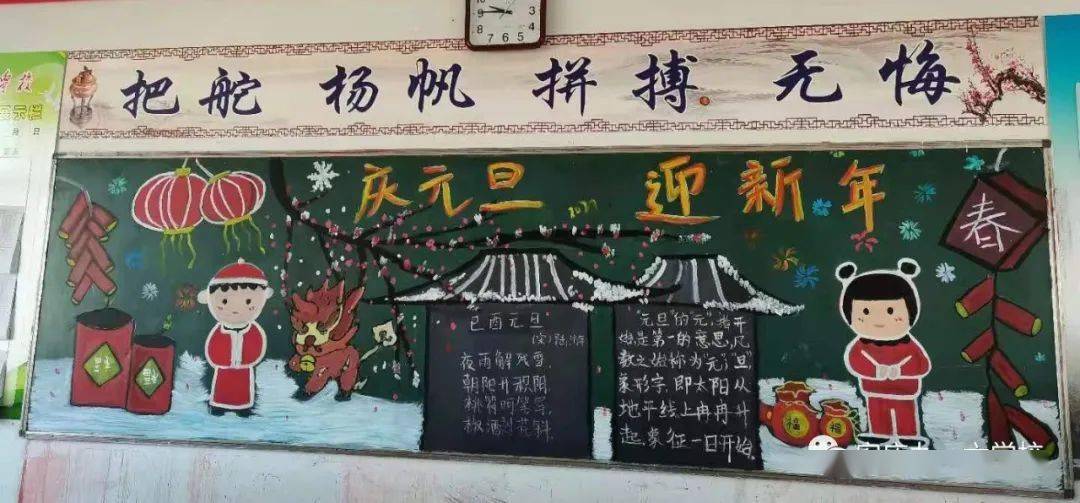 把舵 杨帆 拼搏 无悔
示栏
月 日
庆元旦 迎新年
春
己酉元旦
夜雨解残雪
朝阳开积阴
椒酒
"元旦"的"元",指开
始是第一的意思,凡
数之始称为"元";"旦"
象形字,即太阳从
地平线上冉冉升
起,象征一日开始。
福
福